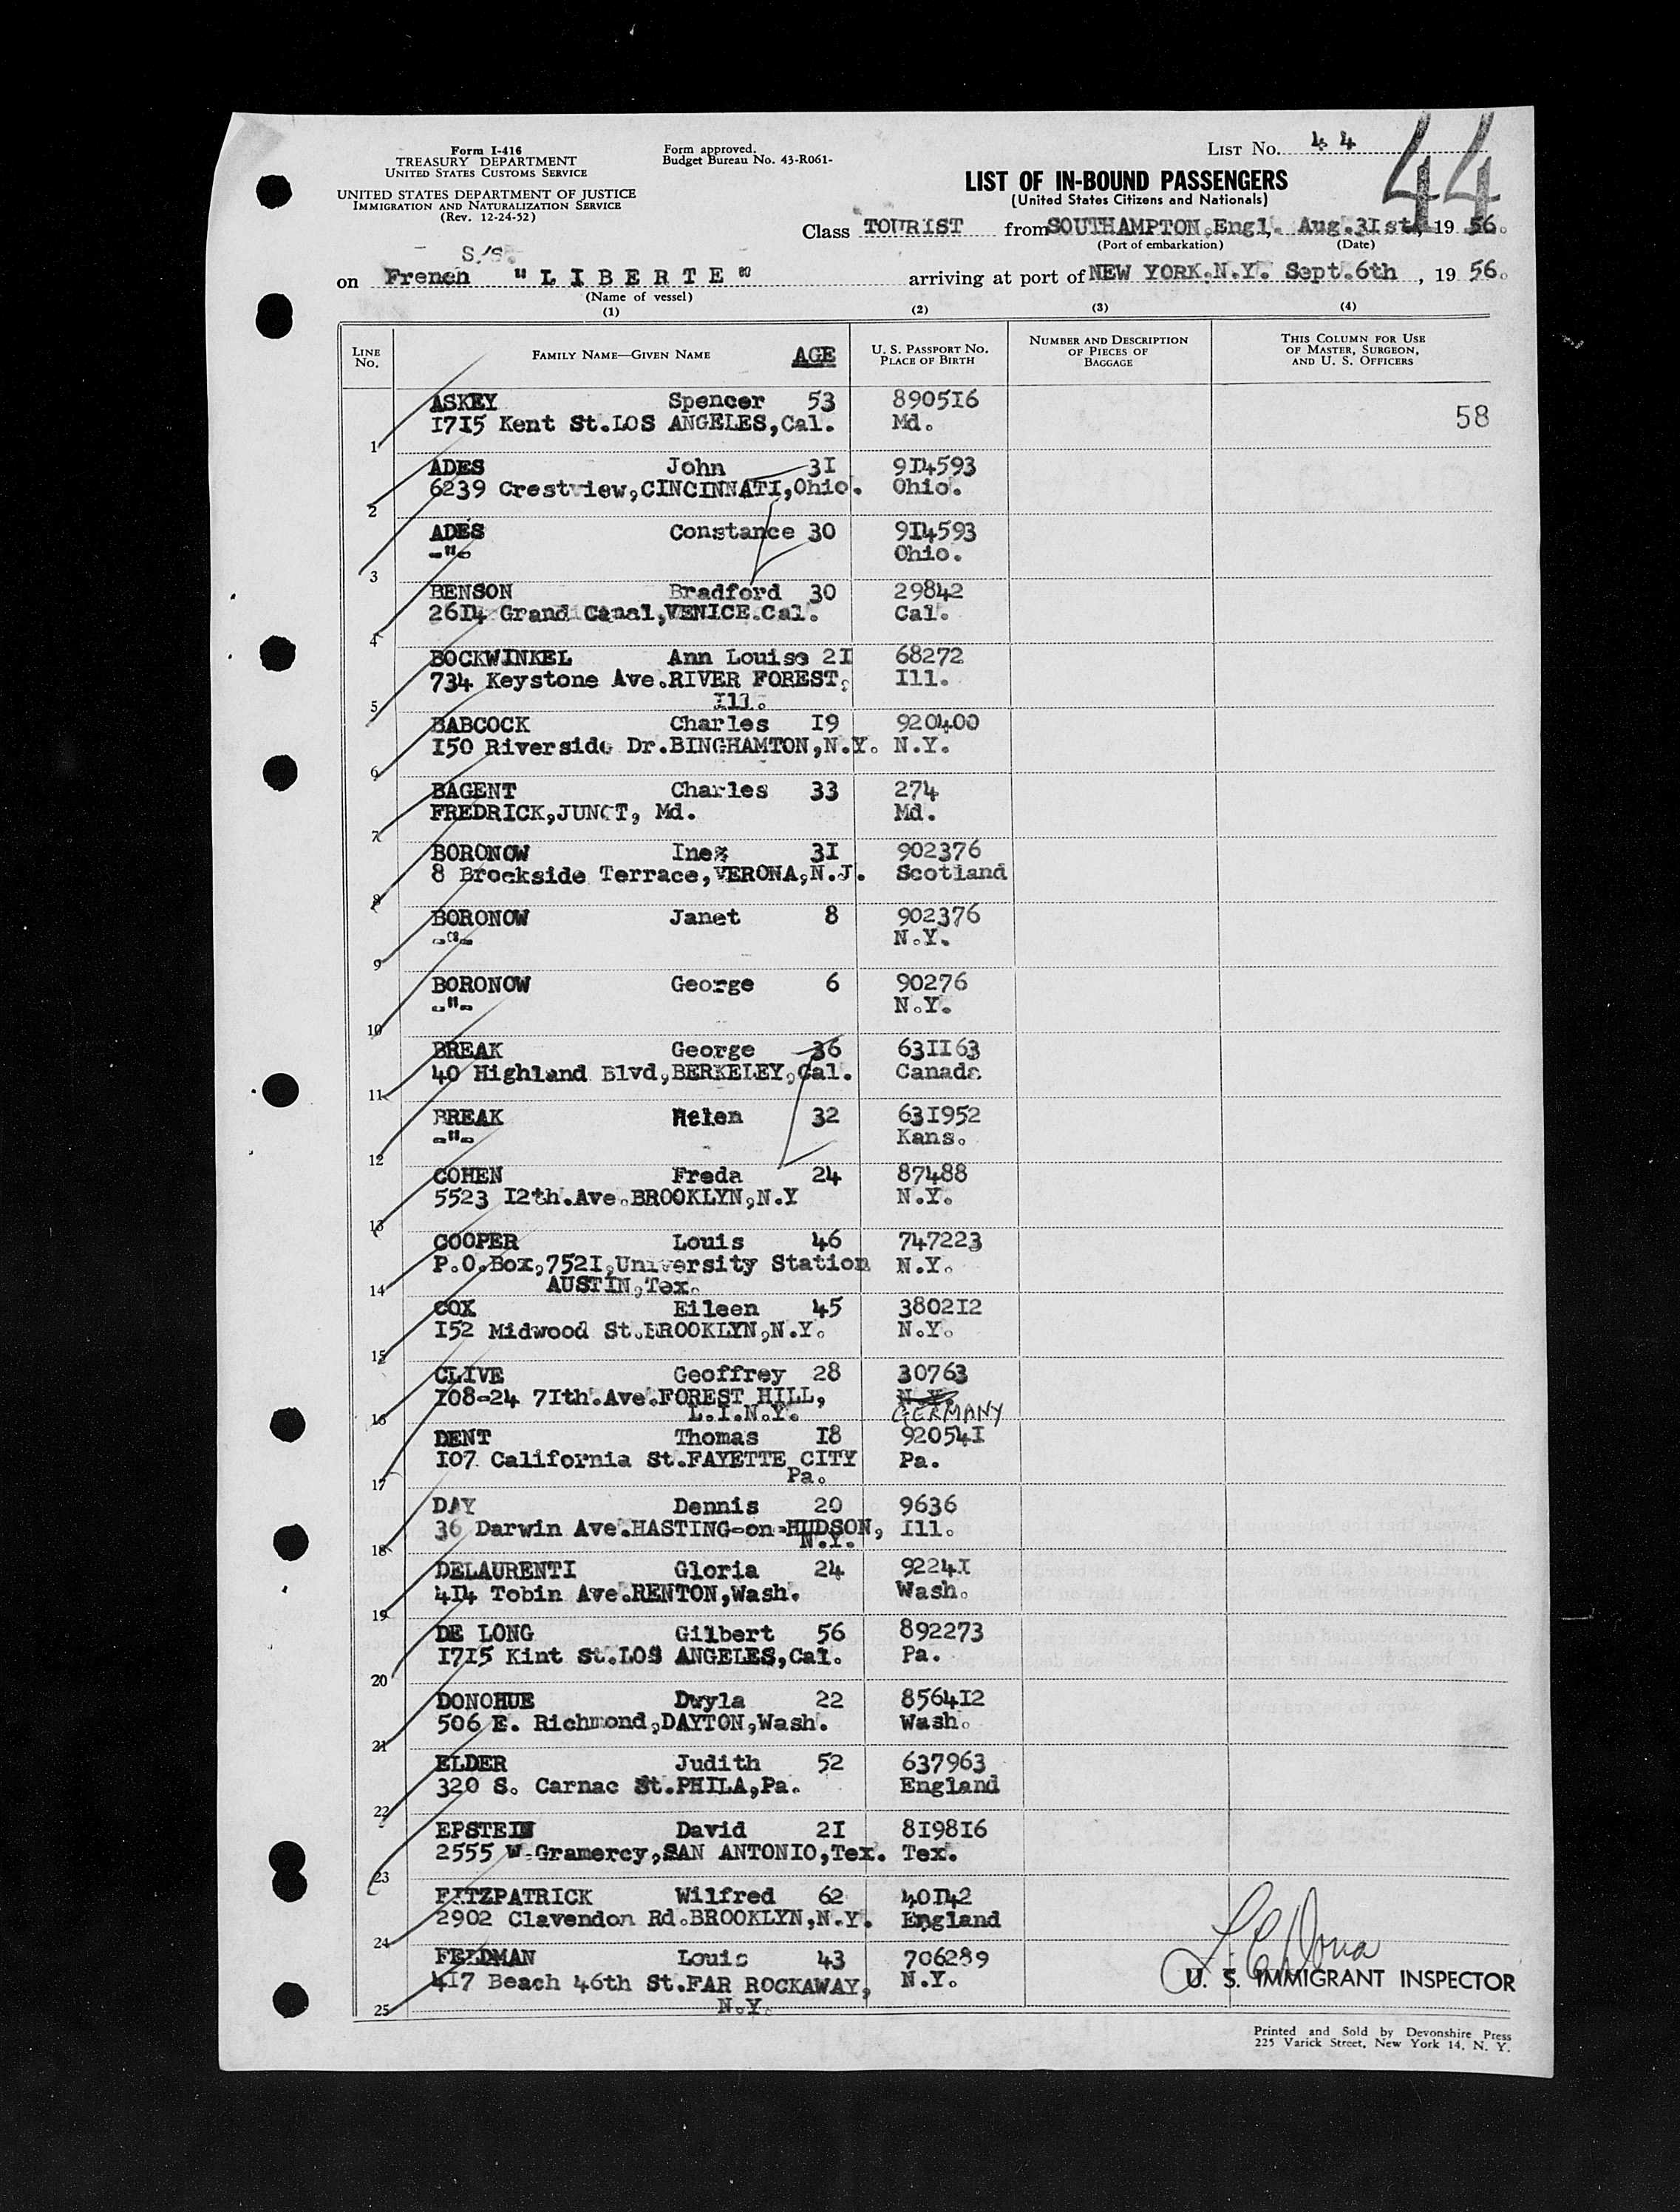 Form I-416
TREASURY DEPARTMENT
UNITED STATES CUSTOMS SERVICE
UNITED STATES DEPARTMENT OF JUSTICE
IMMIGRATION AND NATURALIZATION SERVICE
(Rev. 12-24-52)
Form approved.
Budget Bureau No. 43-R061-
LIST NO. 44
44
LIST OF IN-BOUND PASSENGERS
(United States Citizens and Nationals)
Class TOURIST from SOUTHAMPTON.Engl. Aug.3Ist, 19 56.
(Port of embarkation) (Date)
S/S.
on French "LIBERTE" arriving at port of NEW YORK.N.Y. Sept.6th, 19 56.
(Name of vessel)
(1) (2) (3) (4)
LINE NO. FAMILY NAME—GIVEN NAME AGE U. S. PASSPORT NO. PLACE OF BIRTH NUMBER AND DESCRIPTION OF PIECES OF BAGGAGE THIS COLUMN FOR USE OF MASTER, SURGEON, AND U. S. OFFICERS
ASKEY Spencer 53 8905I6
I7I5 Kent St.LOS ANGELES,Cal. Md. 58
1
ADES John 3I 9I4593
6239 Crestview,CINCINNATI,Ohio. Ohio.
2
ADES Constance 30 9I4593
-"- Ohio.
3
BENSON Bradford 30 29842
26I4 Grand Canal,VENICE.Cal. Cal.
4
BOCKWINKEL Ann Louise 2I 68272
734 Keystone Ave.RIVER FOREST, Ill.
Ill.
5
BABCOCK Charles I9 920400
I50 Riverside Dr.BINGHAMTON,N.Y. N.Y.
6
BAGENT Charles 33 274
FREDRICK,JUNCT, Md. Md.
7
BORONOW Inez 3I 902376
8 Brookside Terrace,VERONA,N.J. Scotland
8
BORONOW Janet 8 902376
-"- N.Y.
9
BORONOW George 6 90276
-"- N.Y.
10
BREAK George 36 63II63
40 Highland Blvd,BERKELEY,Cal. Canada
11
BREAK Helen 32 63I952
-"- Kans.
12
COHEN Freda 24 87488
5523 I2th.Ave.BROOKLYN,N.Y N.Y.
13
COOPER Louis 46 747223
P.O.Box,752I,University Station N.Y.
AUSTIN,Tex.
14
COX Eileen 45 3802I2
I52 Midwood St.BROOKLYN,N.Y. N.Y.
15
CLIVE Geoffrey 28 30763
I08-24 7Ith.Ave.FOREST HILL, N.Y.
L.I.N.Y. GERMANY
16
DENT Thomas I8 92054I
I07 California St.FAYETTE CITY Pa.
Pa.
17
DAY Dennis 20 9636
36 Darwin Ave.HASTING-on-HUDSON, Ill.
N.Y.
18
DELAURENTI Gloria 24 9224I
4I4 Tobin Ave.RENTON,Wash. Wash.
19
DE LONG Gilbert 56 892273
I7I5 Kint St.LOS ANGELES,Cal. Pa.
20
DONOHUE Dwyla 22 8564I2
506 E. Richmond,DAYTON,Wash. Wash.
21
ELDER Judith 52 637963
320 S. Carnac St.PHILA,Pa. England
22
EPSTEIN David 2I 8198I6
2555 W.Gramercy,SAN ANTONIO,Tex. Tex.
23
FITZPATRICK Wilfred 62 40I42
2902 Clavendon Rd.BROOKLYN,N.Y. England
24
FELDMAN Louis 43 706289
4I7 Beach 46th St.FAR ROCKAWAY, N.Y.
N.Y.
25
U. S. IMMIGRANT INSPECTOR
Printed and Sold by Devonshire Press
225 Varick Street, New York 14, N. Y.